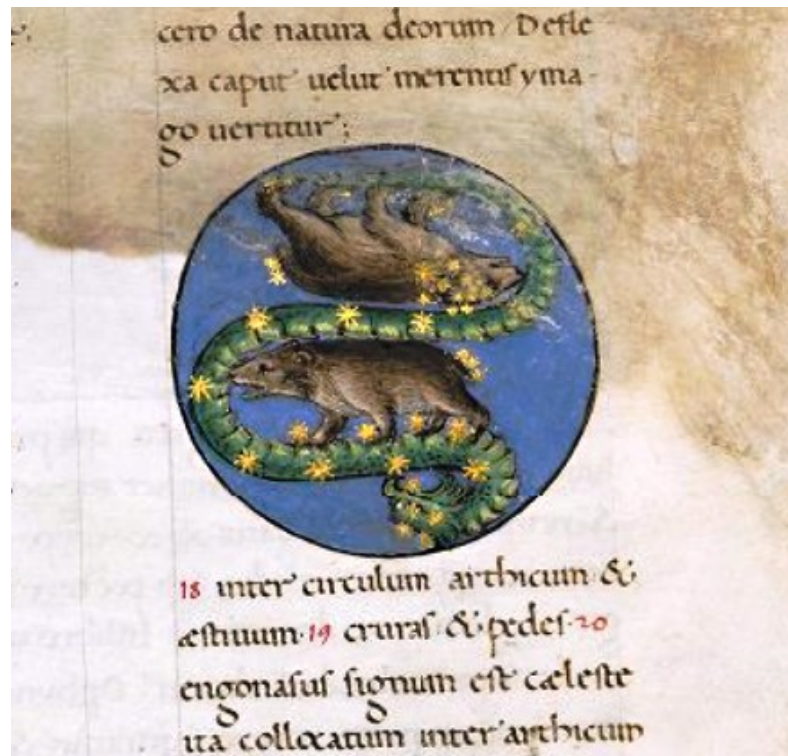 cero de natura deorum Defle
xa caput uelut merentis yma
go uertitur;
18 inter circulum arthicum &
æstiuum· 19 cruras & pedes· 20
engonasus signum est cæleste
ita collocatum inter arthicum